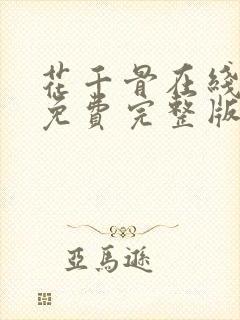 花千骨在綫
免費完整版
亞馬遜